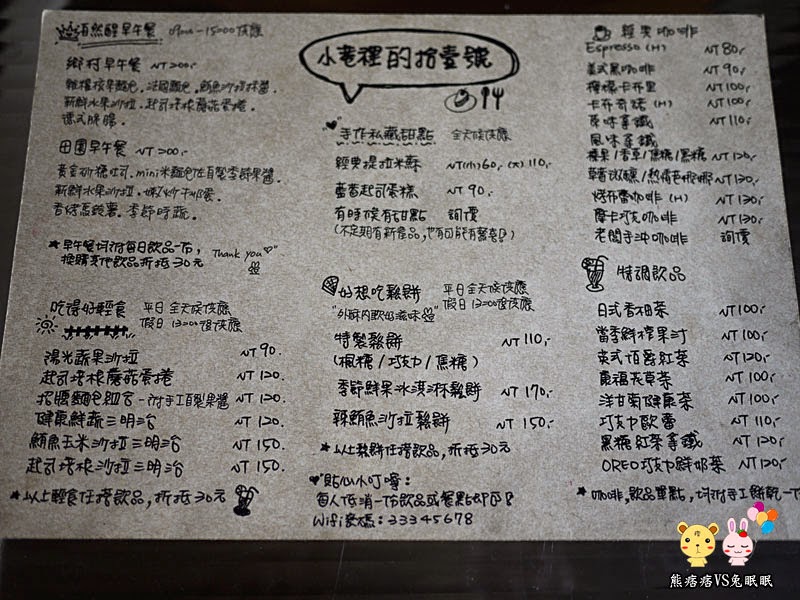 小巷裡的拾壹號
自然醒早午餐 0900-1500供應
鄉村早午餐 NT 200,-
雜糧核果麵包.法國麵包.鮪魚沙拉抹醬.
新鮮水果沙拉.起司培根蘑菇蛋捲.
德式脆腸.
田園早午餐 NT 200,-
黃金砂糖吐司.mini米麵包佐自製季鮮果醬.
新鮮水果沙拉.嫩炒牛奶蛋.
香烤馬鈴薯.季節時蔬.
*早午餐均附每日飲品一份,
換購其他飲品折抵30元
Thank you
吃得好輕食 平日 全天候供應
假日 13:00後供應
陽光蔬果沙拉 NT 90.
起司培根蘑菇蛋捲 NT 120.
招牌麵包組合-附手工自製果醬 NT 120.
健康鮮蔬三明治 NT 120.
鮪魚玉米沙拉三明治 NT 150.
起司培根沙拉三明治 NT 150.
*以上輕食任搭飲品,折抵30元
手作私藏甜點 全天候供應
經典提拉米蘇 NT(小)60,-(大)110,-
藍莓起司蛋糕 NT 90,-
有時候有甜點 詢價
(不定期有新產品,也有可能有驚喜!)
好想吃鬆餅 平日 全天候供應
假日 13:00後供應
"外酥內軟好滋味"
特製鬆餅 NT 110,-
(楓糖/巧克力/焦糖)
季節鮮果冰淇淋鬆餅 NT 170,-
辣鮪魚沙拉鬆餅 NT 150,-
*以上鬆餅任搭飲品,折抵30元
貼心小叮嚀:
每人低消一份飲品或餐點即可!
Wifi密碼:33345678
經典咖啡
Espresso (H) NT 80,-
美式黑咖啡 NT 90,-
檸檬卡布里 NT 100,-
卡布奇諾 (H) NT 100,-
原味拿鐵 NT 110,-
風味拿鐵
榛果/香草/焦糖/黑糖 NT 120,-
NT 120,-
烤布蕾咖啡 (H) NT 130,-
摩卡巧克咖啡 NT 130,-
老闆手沖咖啡 詢價
特調飲品
日式香柚茶 NT 100,-
當季鮮榨果汁 NT 100,-
英式伯爵紅茶 NT 120,-
幸福花草茶 NT 100,-
洋甘菊健康茶 NT 100,-
巧克力歐蕾 NT 110,-
黑糖紅茶拿鐵 NT 120,-
OREO巧克力鮮奶茶 NT 120,-
*咖啡,飲品單點,均附手工餅乾一
熊痞痞VS兔眠眠